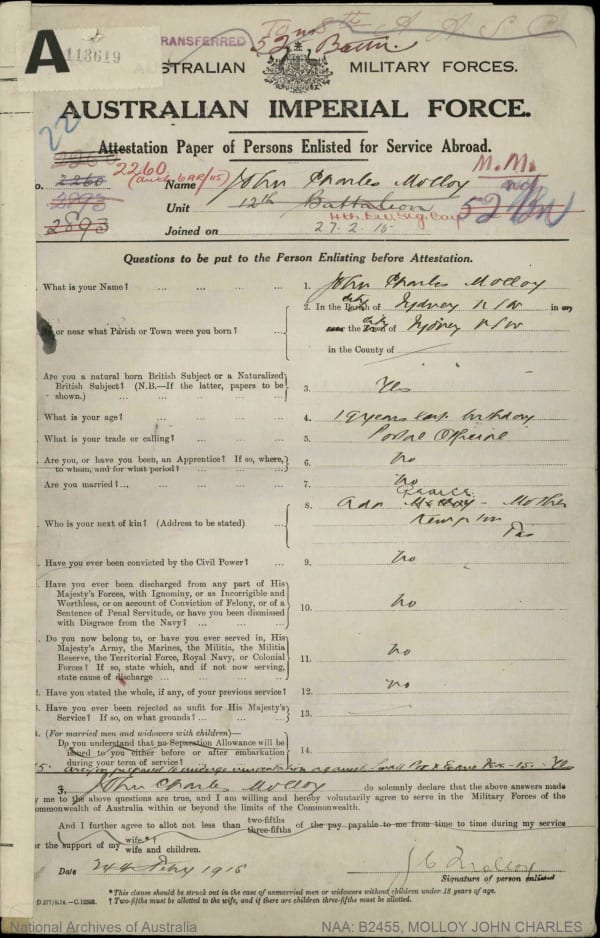 A
113619
TRANSFERRED
To 8th A A S C
52nd Battn.
AUSTRALIAN MILITARY FORCES.
AUSTRALIAN IMPERIAL FORCE.
Attestation Paper of Persons Enlisted for Service Abroad.
22
2260
M.M.
o. 2260 Name John Charles Molloy
2893 Unit 12th Battalion 52 Bn
4th Div. Sig. Coy
2893 Joined on 27.2.15
Questions to be put to the Person Enlisting before Attestation.
. What is your Name? ... ... ... ... 1. John Charles Molloy
2. In the Parish of city Sydney NSW in or
or near what Parish or Town were you born? ... near the Town of city Sydney NSW
in the County of
Are you a natural born British Subject or a Naturalized
British Subject? (N.B.—If the latter, papers to be
shown.) ... ... ... ... 3. Yes
What is your age? ... ... ... ... 4. 19 years last birthday
What is your trade or calling? ... ... ... 5. Postal Official
Are you, or have you been, an Apprentice? If so, where,
to whom, and for what period? ... ... ... 6. No
Are you married? ... ... ... ... 7. No
Pearce
8. Ada Molloy - Mother
. Who is your next of kin? (Address to be stated) ... Kempton
Tas
. Have you ever been convicted by the Civil Power? ... 9. No
. Have you ever been discharged from any part of His
Majesty's Forces, with Ignominy, or as Incorrigible and
Worthless, or on account of Conviction of Felony, or of a
Sentence of Penal Servitude, or have you been dismissed
with Disgrace from the Navy? ... ... ... 10. No
. Do you now belong to, or have you ever served in, His
Majesty's Army, the Marines, the Militia, the Militia
Reserve, the Territorial Force, Royal Navy, or Colonial
Forces? If so, state which, and if not now serving,
state cause of discharge ... ... ... 11. No
. Have you stated the whole, if any, of your previous service? 12. No
. Have you ever been rejected as unfit for His Majesty's
Service? If so, on what grounds? ... ... ... 13.
. (For married men and widowers with children)—
Do you understand that no Separation Allowance will be
issued to you either before or after embarkation
during your term of service? 14.
5. Are you prepared to undergo inoculation against Small Pox & Enteric Fever 15. Yes
I, John Charles Molloy do solemnly declare that the above answers made
y me to the above questions are true, and I am willing and hereby voluntarily agree to serve in the Military Forces of the
ommonwealth of Australia within or beyond the limits of the Commonwealth.
And I further agree to allot not less than two-fifths three-fifths of the pay payable to me from time to time during my service
or the support of my wife.*
wife and children.
Date 24th Feby 1915 J C Molloy
Signature of person enlisted
* This clause should be struck out in the case of unmarried men or widowers without children under 18 years of age.
† Two-fifths must be allotted to the wife, and if there are children three-fifths must be allotted.
D.377/9.14.—C.12898.
National Archives of Australia NAA: B2455, MOLLOY JOHN CHARLES